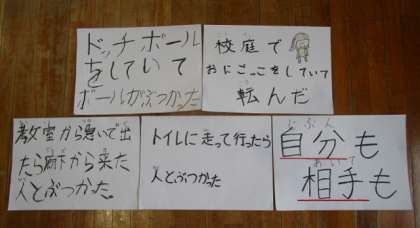 ドッチボール
をしていて
ボールがぶつかった
校庭で
おにごっこをしていて
転んだ
教室から急いで出
たら廊下から来た
人とぶつかった
トイレに走って行ったら
人とぶつかった
自分も
相手も